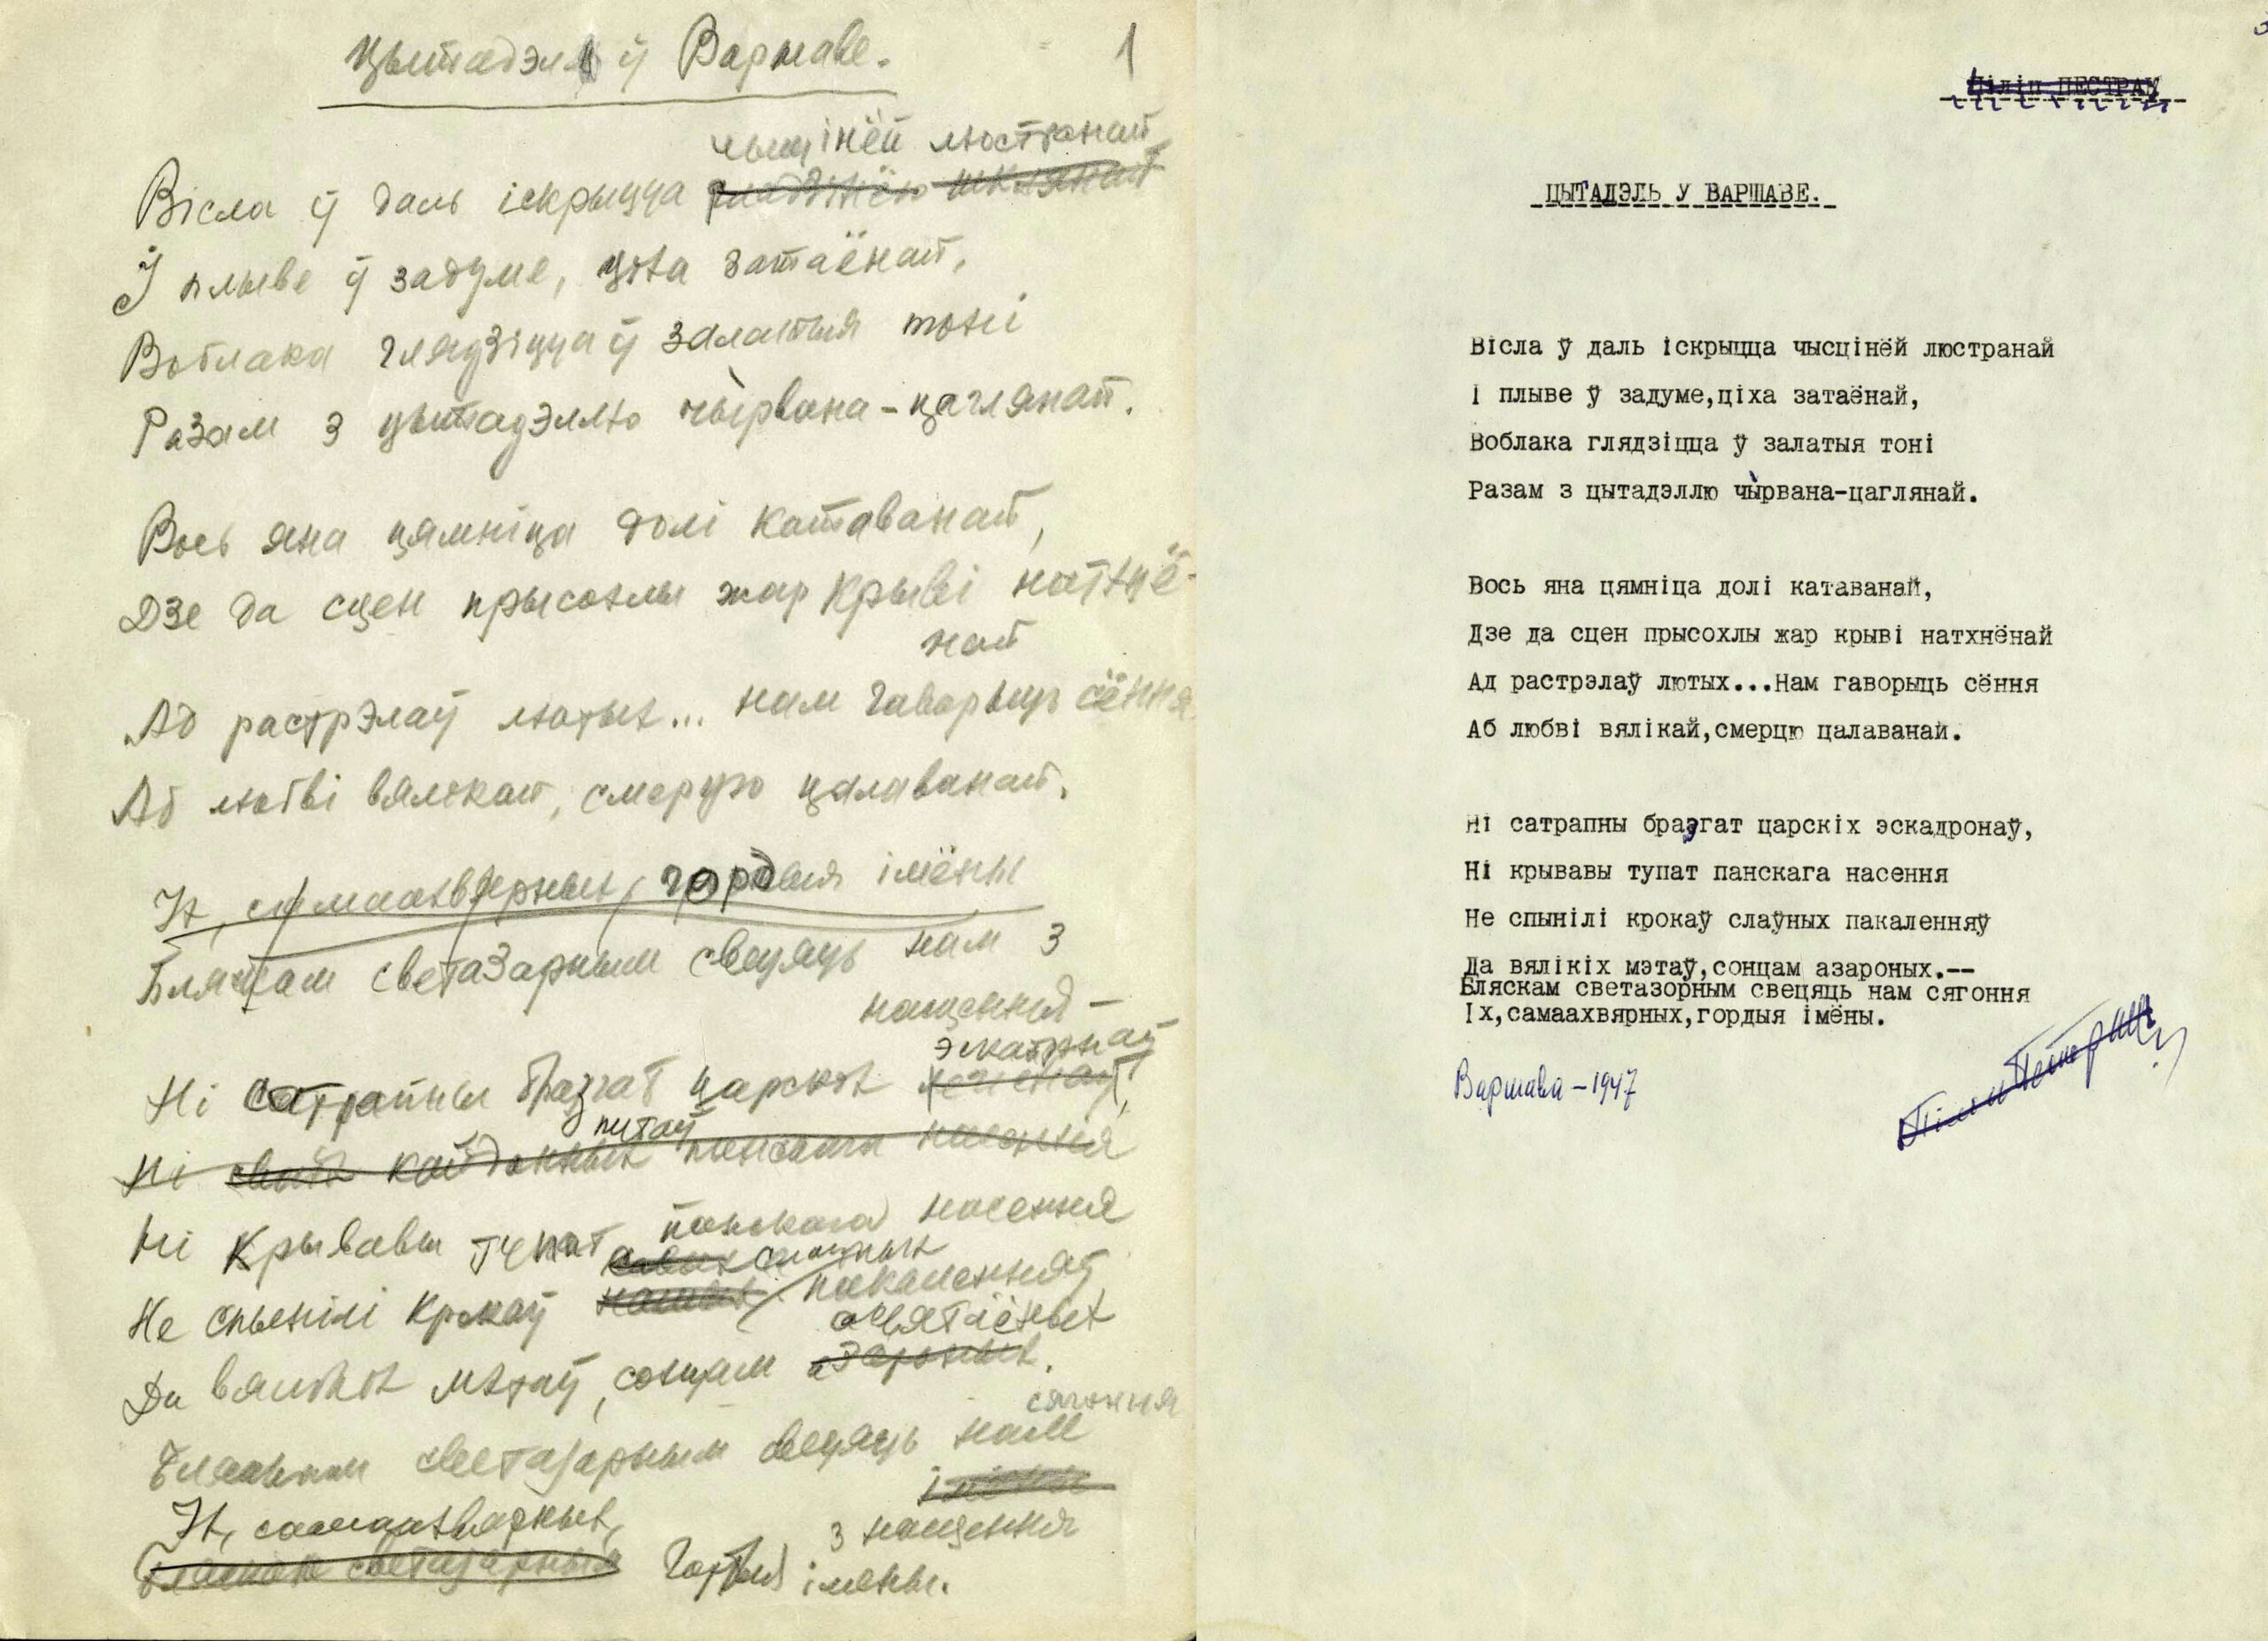 Цытадэль ў Варшаве.
1
чысцінёй люстранай
Вісла ў даль іскрыцца гладдзінёю шклянай
І плыве ў задуме, ціха затаёнай,
Воблака глядзіцца ў залатыя тоні
Разам з цытадэллю чырвана-цаглянай.
Вось яна цямніца долі катаванай,
Дзе да сцен прысохлы жар крыві натхнё-
най
Ад растрэлаў лютых... нам гаворыць сёння
Аб любві вялікай, смерцю цалаванай.
Іх, самаахвярных, гордыя імёны
Бляскам светазарным свецяць нам з
нацення —
эскадронаў
Ні сатрапны бразгат царскіх
путаў
Ні кайданных панскага насення
Ні крывавы тупат панскага насення
слаўных
Не спынілі крокаў нашых пакаленняў
асвятлёных
Да вялікіх мэтаў, сонцам азароных.
сягоння
Бляскам светазарным свецяць нам
імёны
Іх, самаахвярных,
з нацення
Бляскам светазарным гордыя імёны.
3
Піліп ПЕСТРАК
ЦЫТАДЭЛЬ У ВАРШАВЕ.
Вісла ў даль іскрыцца чысцінёй люстранай
І плыве ў задуме,ціха затаёнай,
Воблака глядзіцца ў залатыя тоні
Разам з цытадэллю чырвана-цаглянай.
Вось яна цямніца долі катаванай,
Дзе да сцен прысохлы жар крыві натхнёнай
Ад растрэлаў лютых...Нам гаворыць сёння
Аб любві вялікай,смерцю цалаванай.
Ні сатрапны бразгат царскіх эскадронаў,
Ні крывавы тупат панскага насення
Не спынілі крокаў слаўных пакаленняў
Да вялікіх мэтаў,сонцам азароных.--
Бляскам светазорным свецяць нам сягоння
Іх,самаахвярных,гордыя імёны.
Варшава – 1947
Піліп Пестрак